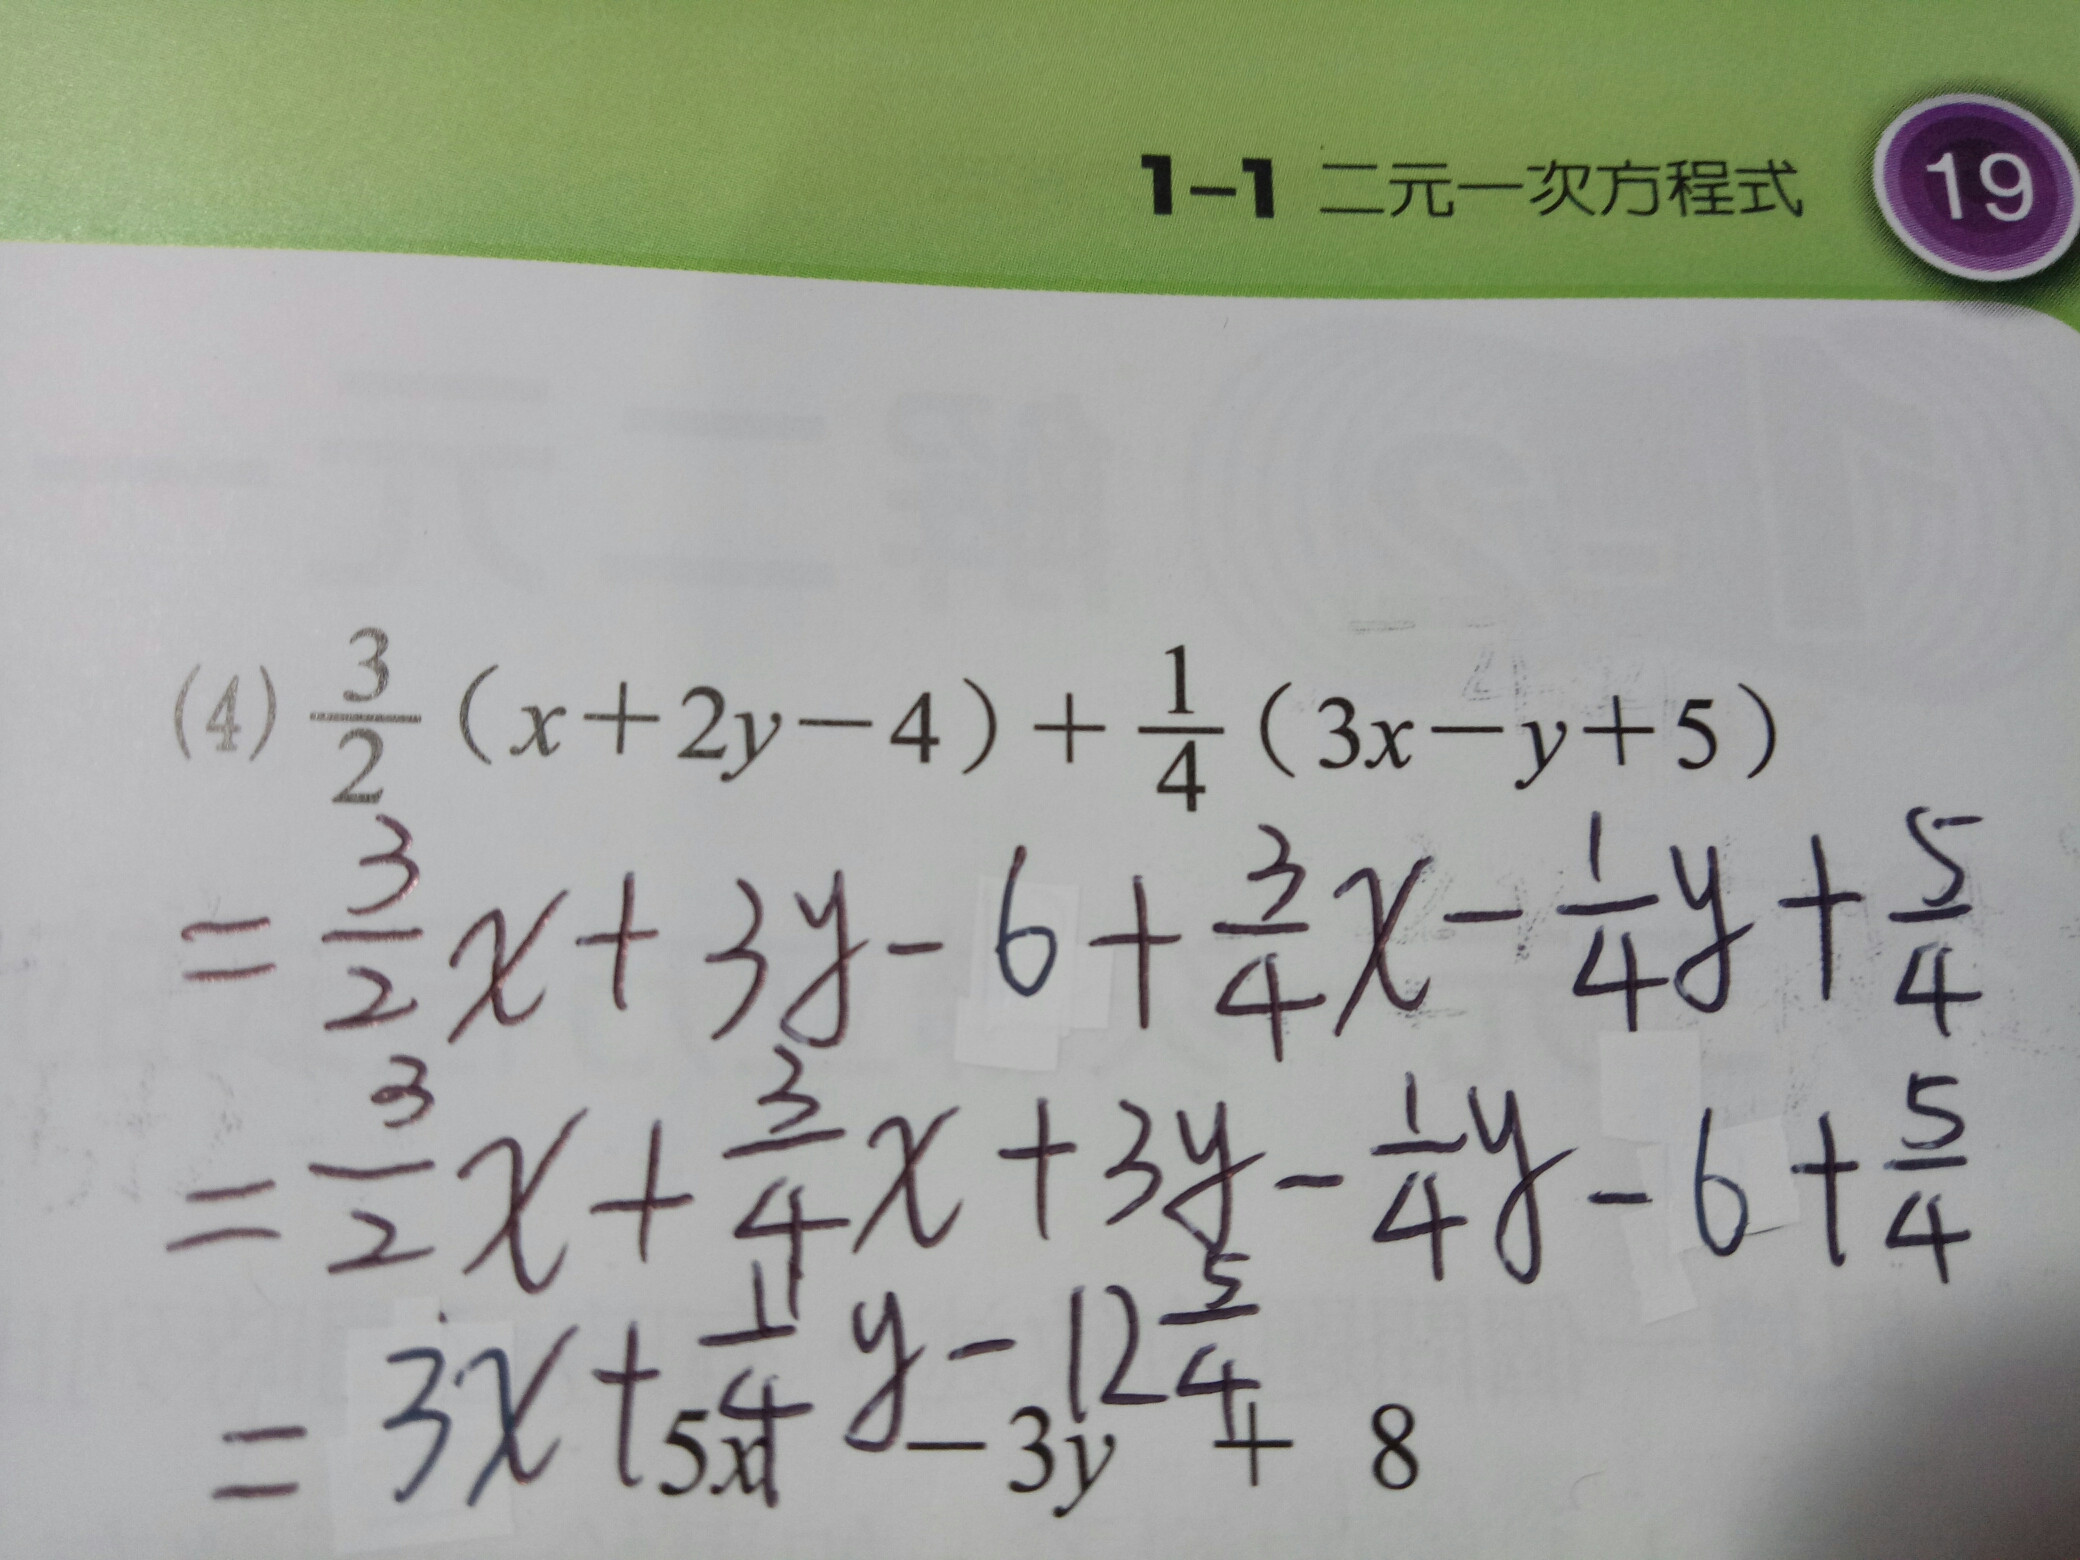 1-1 二元一次方程式 19
(4) 3/2 (x+2y-4)+1/4 (3x-y+5)
= 3/2 x + 3y - 6 + 3/4 x - 1/4 y + 5/4
= 3/2 x + 3/4 x + 3y - 1/4 y - 6 + 5/4
= 3x + 11/4 y - 12 5/4
5x - 3y + 8